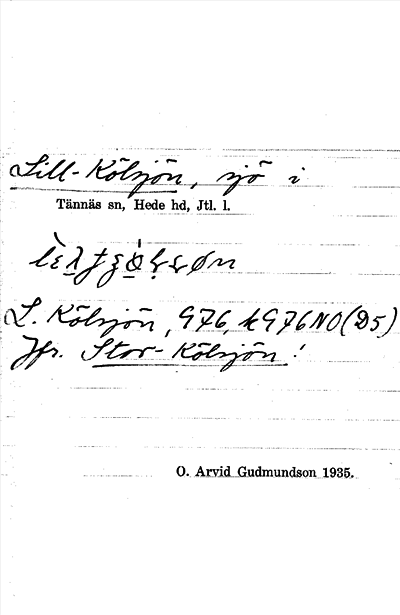 Lill-Kölsjön, sjö i
Tännäs sn, Hede hd, Jtl. l.
L. Kölsjön, 976, k976NO(D5)
Jfr. Stor-Kölsjön!
O. Arvid Gudmundson 1935.